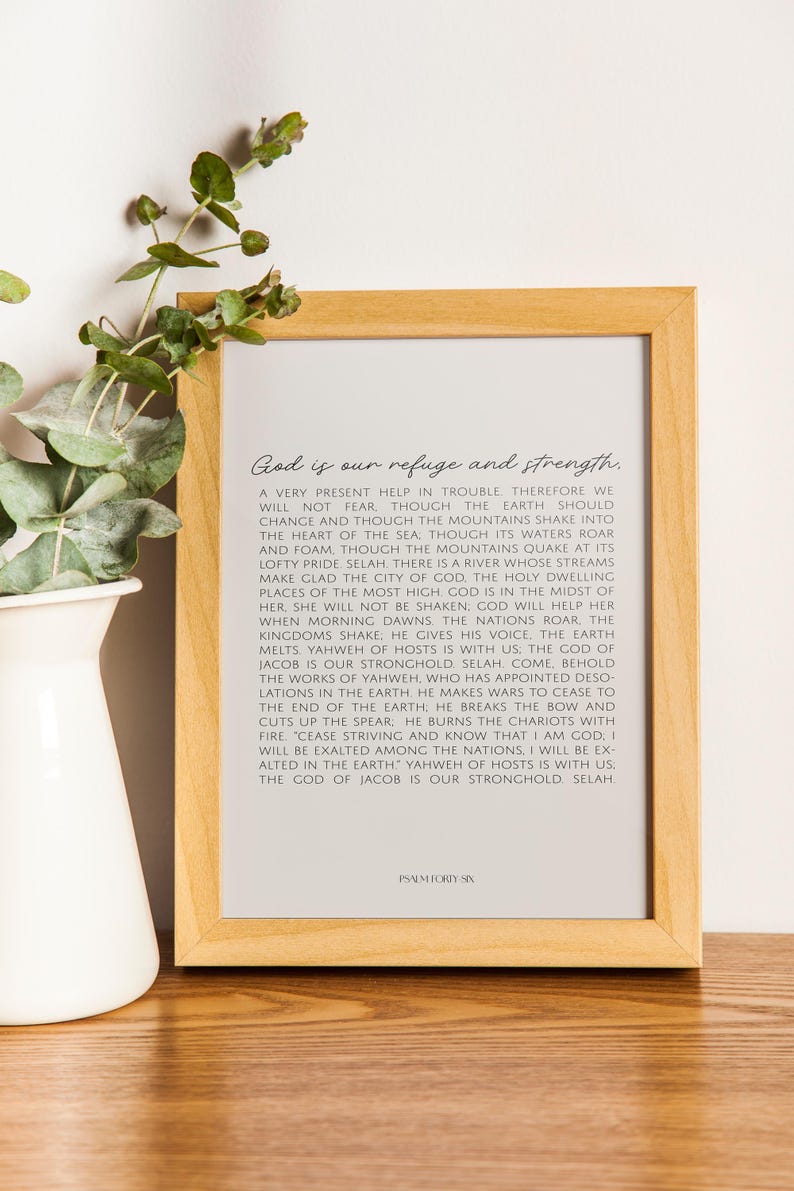 God is our refuge and strength,
A VERY PRESENT HELP IN TROUBLE. THEREFORE WE
WILL NOT FEAR, THOUGH THE EARTH SHOULD
CHANGE AND THOUGH THE MOUNTAINS SHAKE INTO
THE HEART OF THE SEA; THOUGH ITS WATERS ROAR
AND FOAM, THOUGH THE MOUNTAINS QUAKE AT ITS
LOFTY PRIDE. SELAH. THERE IS A RIVER WHOSE STREAMS
MAKE GLAD THE CITY OF GOD, THE HOLY DWELLING
PLACES OF THE MOST HIGH. GOD IS IN THE MIDST OF
HER, SHE WILL NOT BE SHAKEN; GOD WILL HELP HER
WHEN MORNING DAWNS. THE NATIONS ROAR, THE
KINGDOMS SHAKE; HE GIVES HIS VOICE, THE EARTH
MELTS. YAHWEH OF HOSTS IS WITH US; THE GOD OF
JACOB IS OUR STRONGHOLD. SELAH. COME, BEHOLD
THE WORKS OF YAHWEH, WHO HAS APPOINTED DESO-
LATIONS IN THE EARTH. HE MAKES WARS TO CEASE TO
THE END OF THE EARTH; HE BREAKS THE BOW AND
CUTS UP THE SPEAR; HE BURNS THE CHARIOTS WITH
FIRE. "CEASE STRIVING AND KNOW THAT I AM GOD; I
WILL BE EXALTED AMONG THE NATIONS, I WILL BE EX-
ALTED IN THE EARTH." YAHWEH OF HOSTS IS WITH US;
THE GOD OF JACOB IS OUR STRONGHOLD. SELAH.
PSALM FORTY-SIX